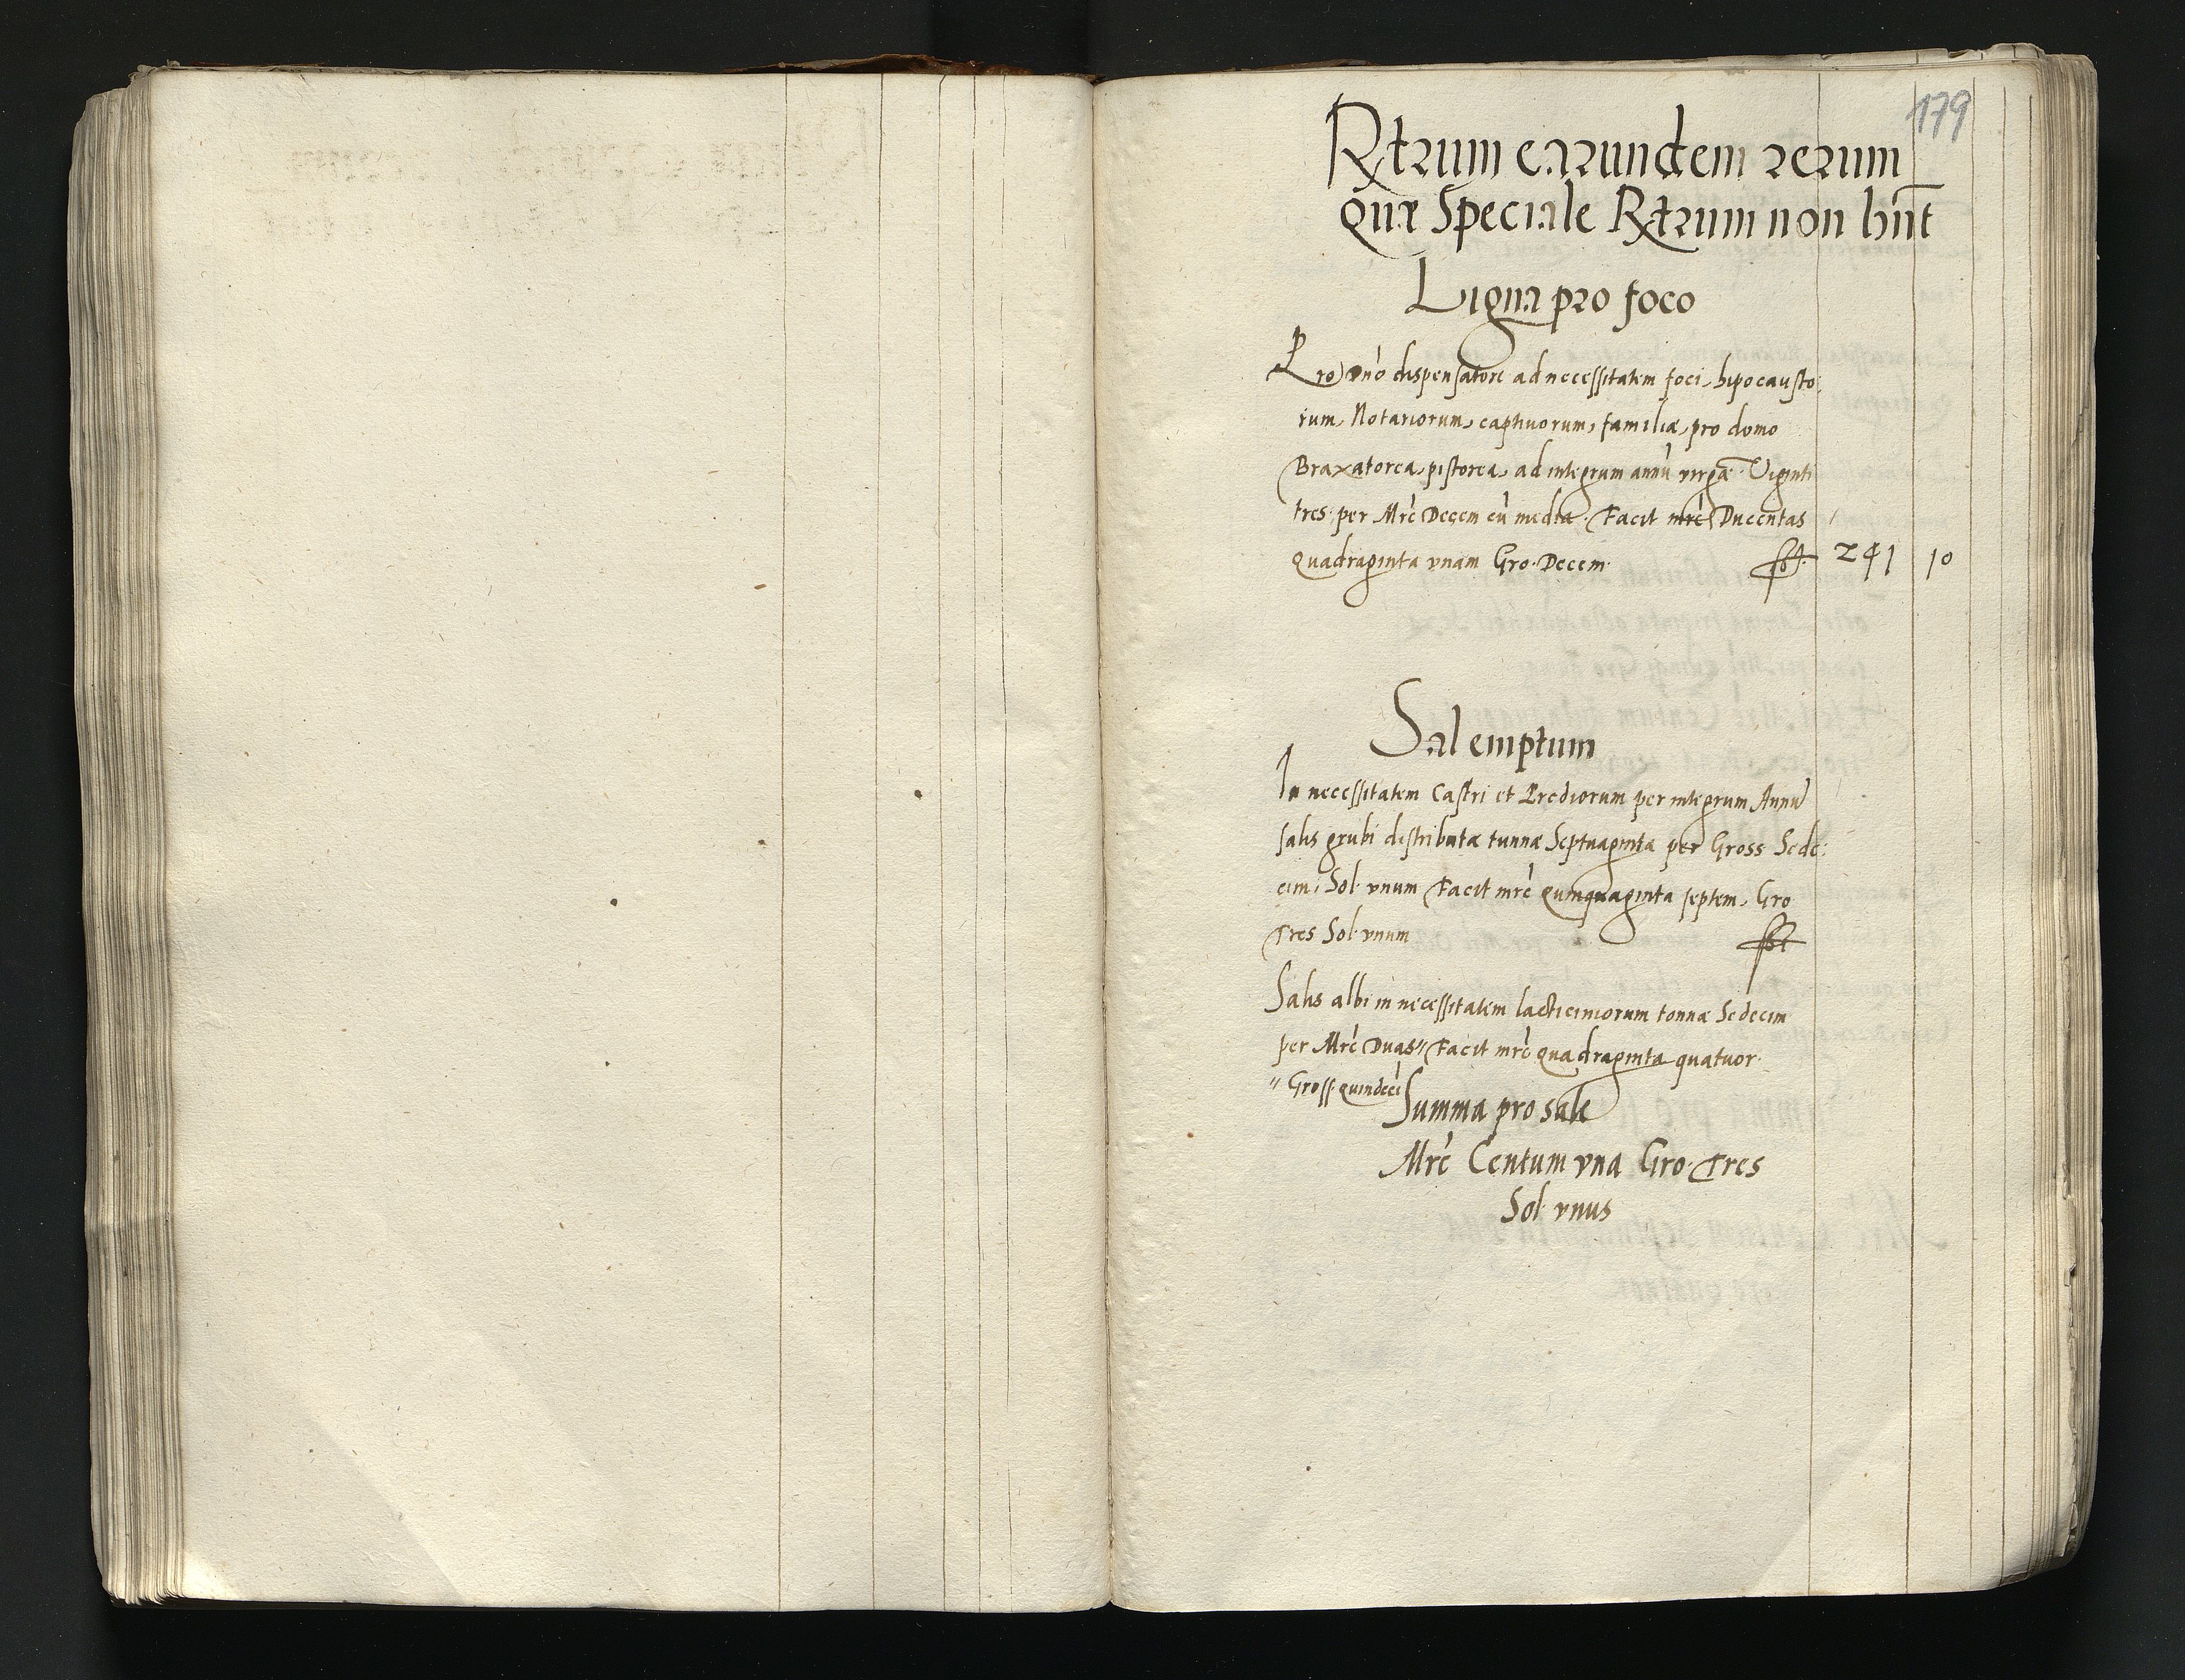 179
Rxtrum earundem rerum
quæ Speciale Rxtrum non hñt
Ligna pro foco
Pro Dnò dispensatore ad necessitatem foci, hipocausto:
rum, Notariorum, captivorum, familiæ, pro domo
Braxatorea, pistorea, ad integrum annũ virgæ Viginti
tres per Mrc̀ Decem cũ media. Facit mrc̀ Ducentas
Quadraginta vnam Gro. Decem. 241 10
Sal emptum
In necessitatem Castri et Prediorum per integrum Annũ
salis grubi distributæ tunnæ Septuaginta per Gross Sede:
cim, Sol. vnum Facit mrc̀ quinquaginta septem, Gro
Tres Sol. vnum
Salis albi in necessitatem lacticiniorum tonnæ Sedecim
per Mrc̀ Duas" Facit mrc̀ quadraginta quatuor.
" Gross. quindecĩ
Summa pro sale
Mrc̀ Centum vna Gro. Tres
Sol. vnus